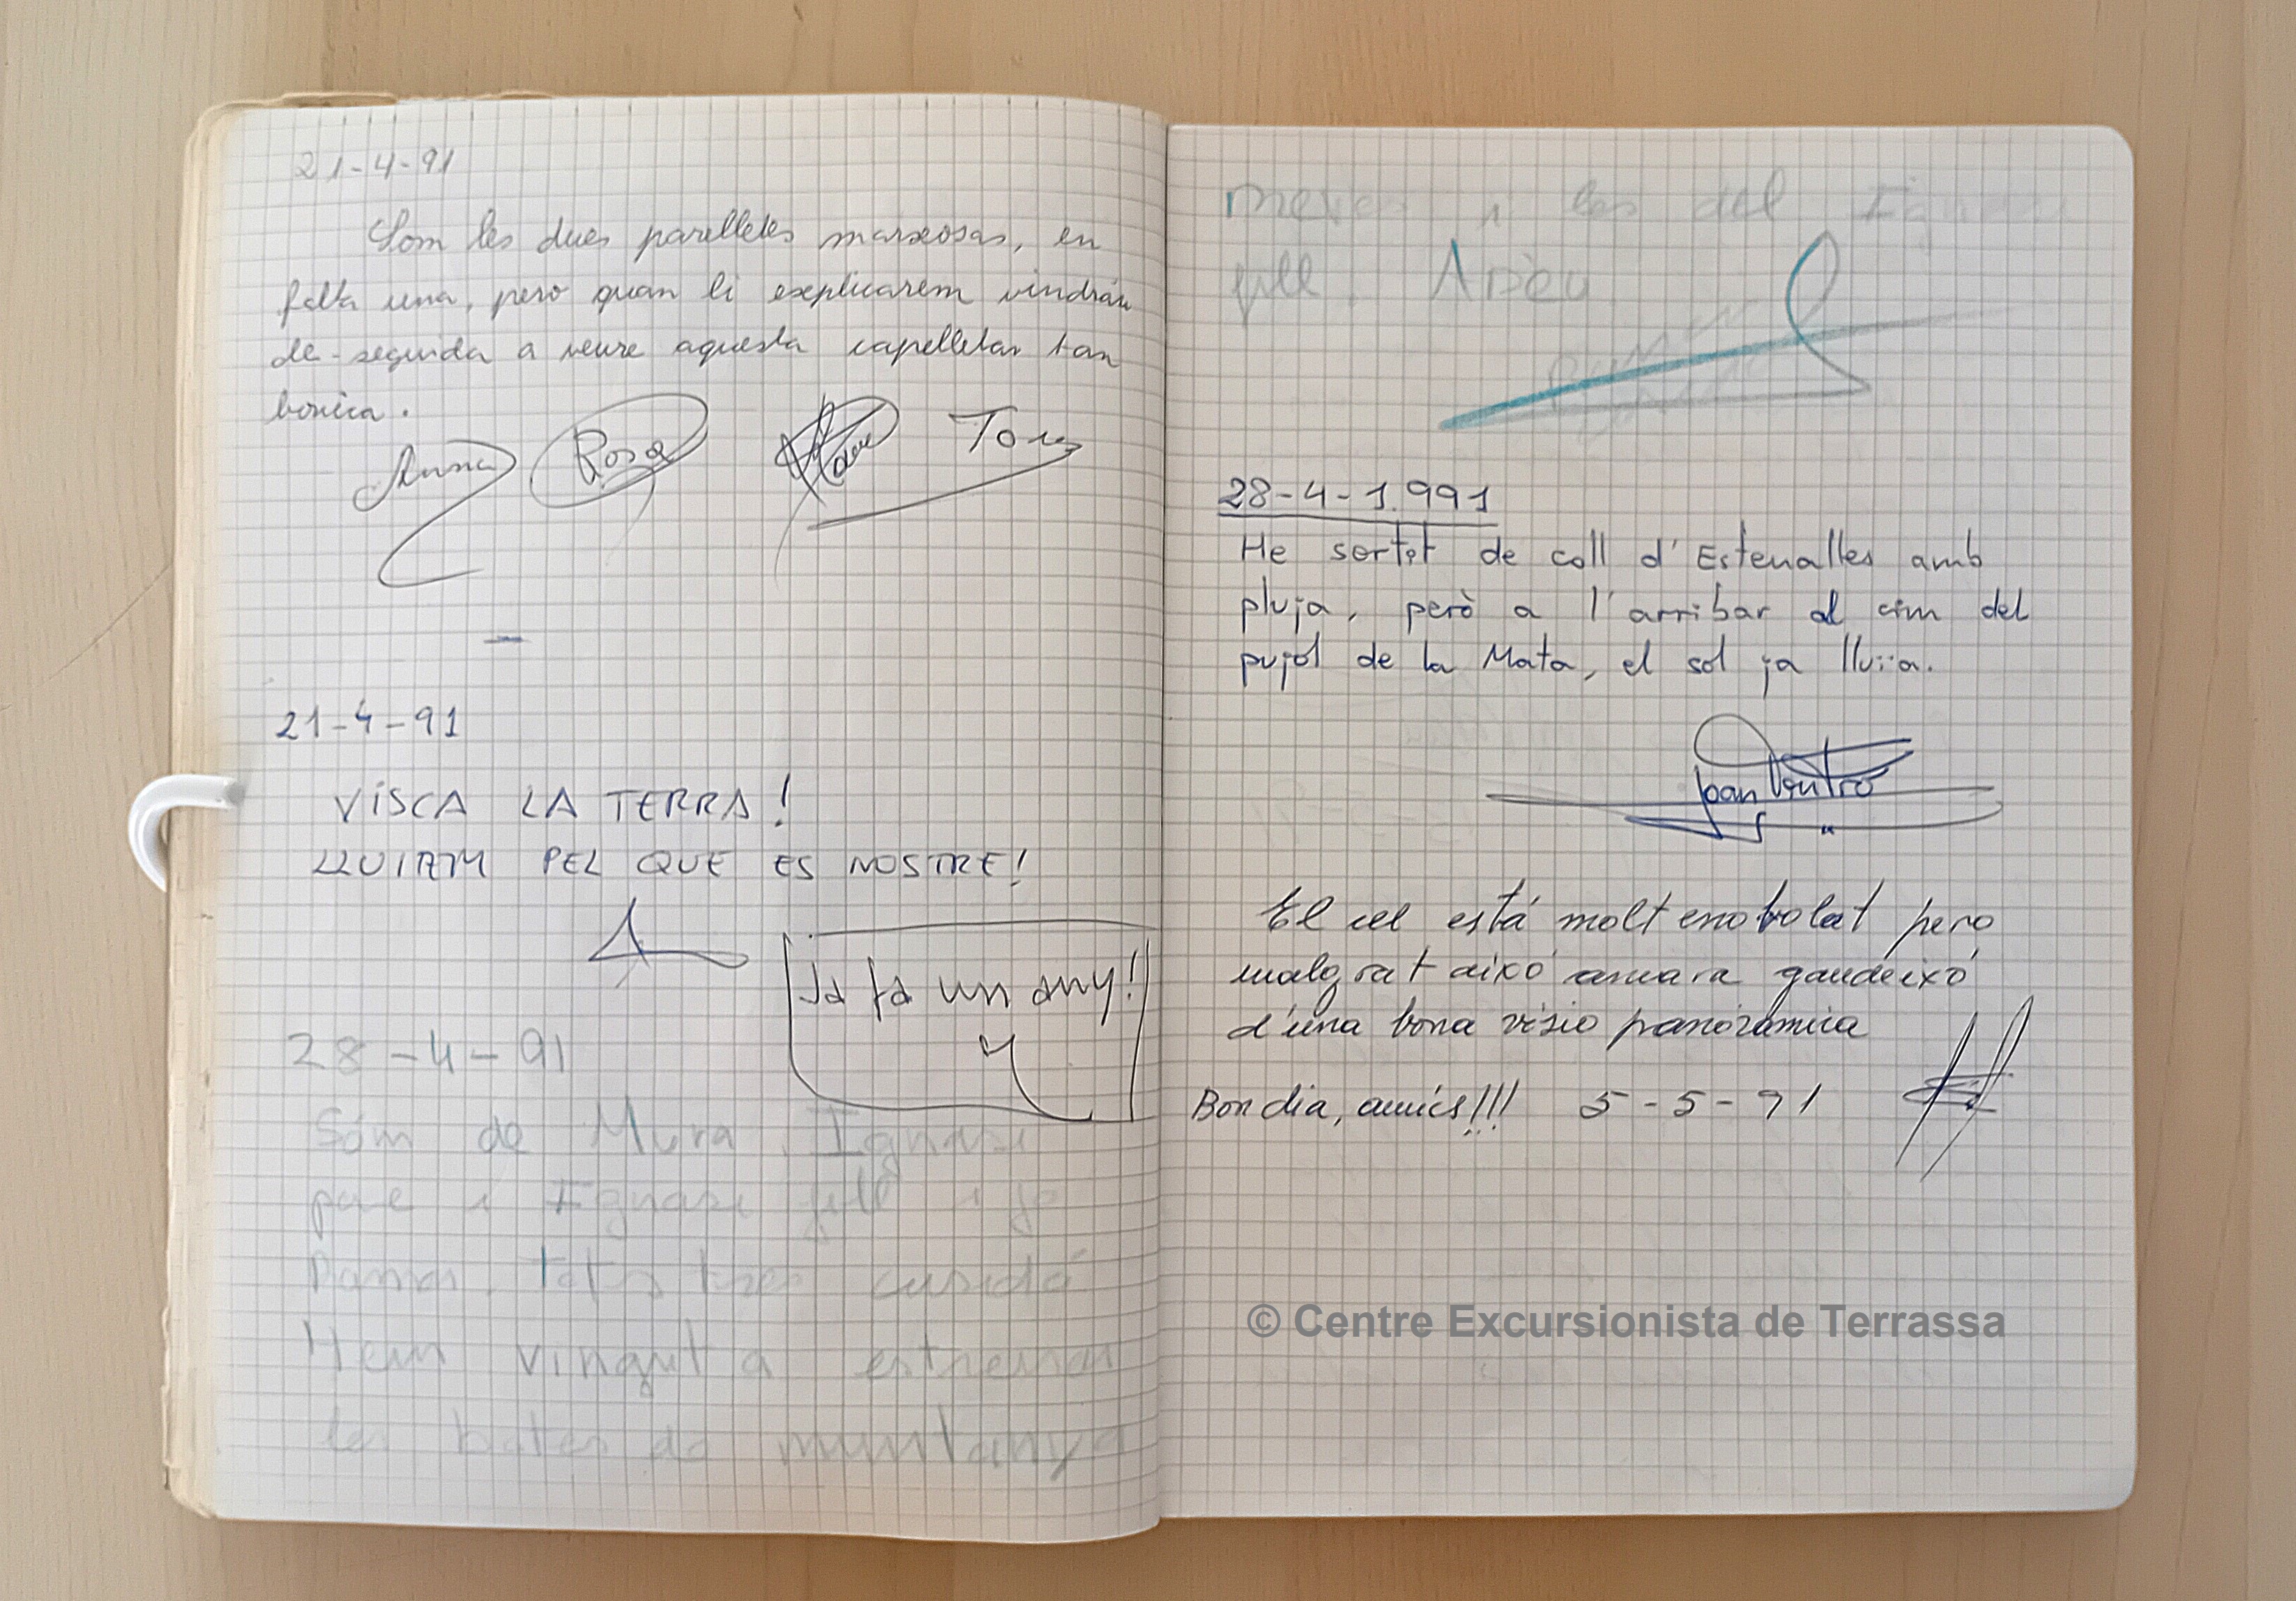 21-4-91
Som les dues parelletes marxosas, en
falta una, pero quan li explicarem vindrán
de-seguida a veure aquesta capelletas tan
bonica.
Anna Rosa Tony
21-4-91
VISCA LA TERRA!
LLUITEM PEL QUE ES NOSTRE!
Ja fa un any!
28-4-91
Sóm de Mura, Ignasi
pare i Ignasi fill i jo
Tots tres
Hem vingut a estrenar
les botes de muntanya
meves i les del Ignasi
fill. Adéu
28-4-1.991
He sortit de coll d'Estenalles amb
pluja, però a l'arribar al cim del
pujol de la Mata, el sol ja lluïa.
Joan Ventró
El cel está molt enobolat pero
malgrat aixó encara gaudeixó
d'una bona visio panorámica
Bon dia, amics!!! 5-5-91
© Centre Excursionista de Terrassa